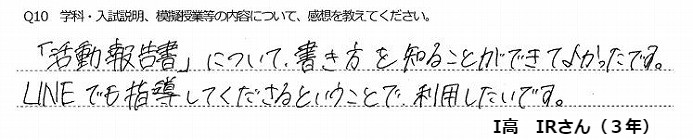 Q10　学科・入試説明、模擬授業等の内容について、感想を教えてください。
「活動報告書」について、書き方を知ることができてよかったです。
LINEでも指導してくださるということで、利用したいです。
I高　IRさん（３年）